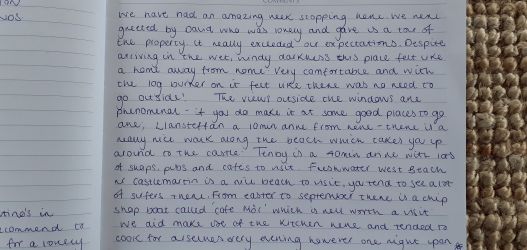 COMMENTS
We have had an amazing week stopping here. We were
greeted by David who was lovely and gave is a tour of
the property it really exceeded our expectations. Despite
arriving in the wet, windy darkness this place felt like
a home away from home. Very comfortable and with
the log burner on it felt like there was no need to
go outside! The views outside the windows are
phenomenal - if you do make it at some good places to go
are, Llansteffan a 10min drive from here - there is a
really nice walk along the beach which takes you up
around to the castle. Tenby is a 40min drive with lots
of shops, pubs and cafes to visit. Freshwater West Beach
nr Castlemartin is a nice beach to visit, you tend to see alot
of surfers there. From easter to september there is a chip
shop boat called cafe Môr which is well worth a visit
We did make use of the kitchen here and tended to
cook for ourselves every evening however one night upon
NOS
tino's in
commend to
for a lovely